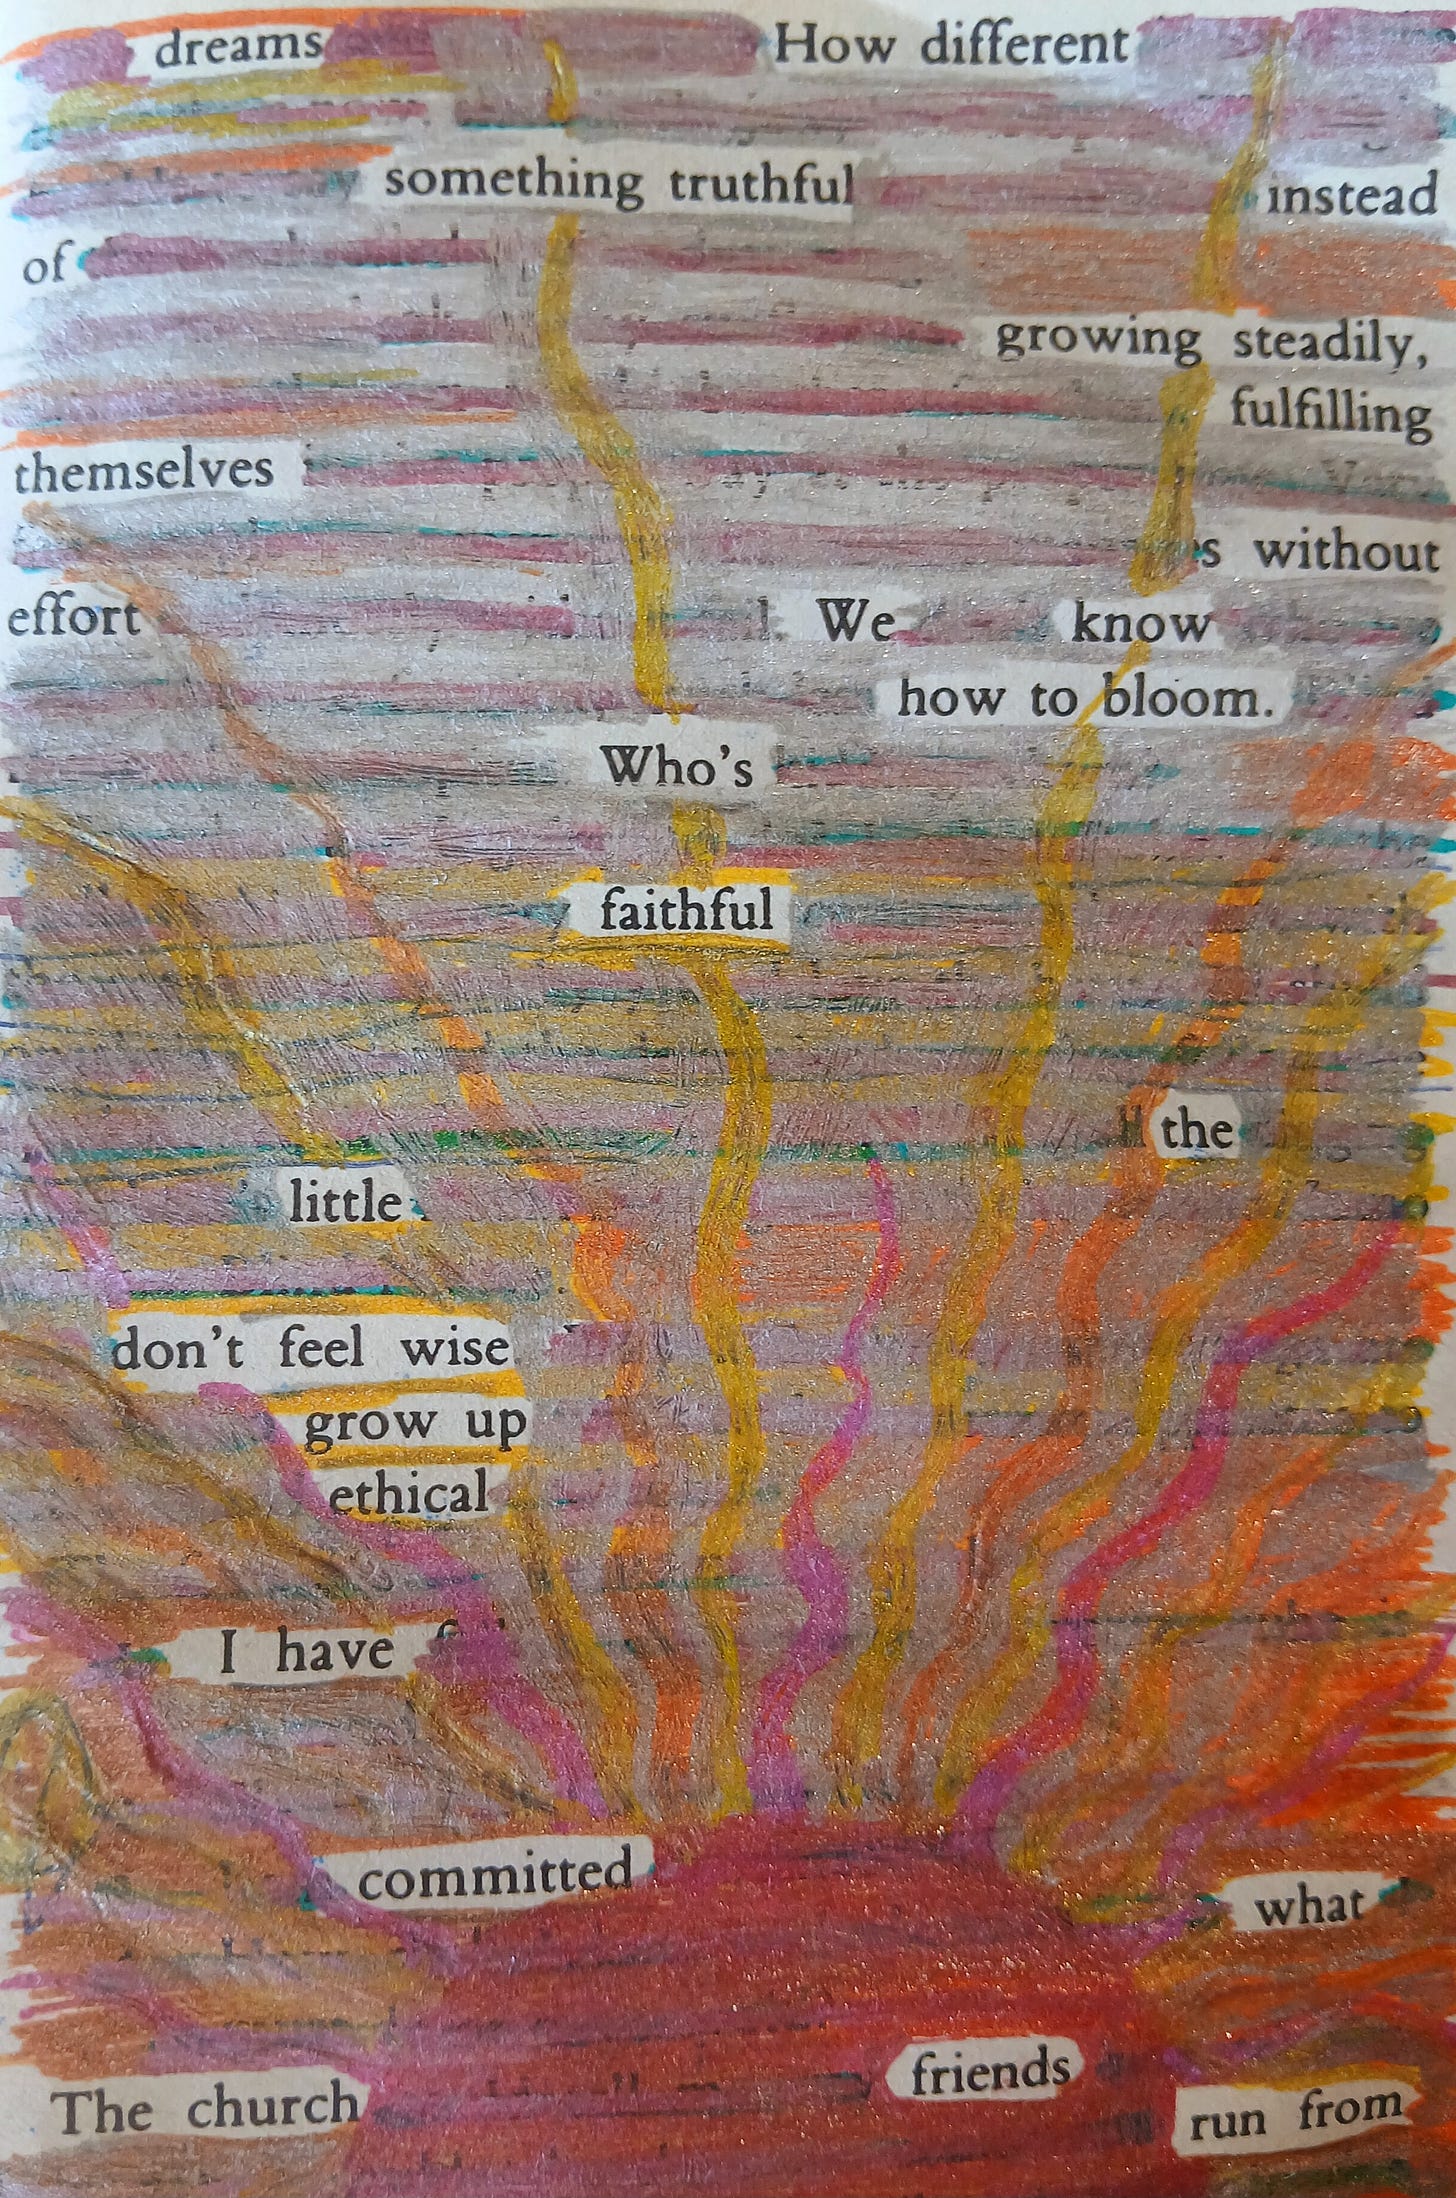 dreams How different
something truthful instead
of
growing steadily,
fulfilling
themselves
s without
effort We know
how to bloom.
Who's
faithful
the
little
don't feel wise
grow up
ethical
I have
committed
what
friends
The church run from